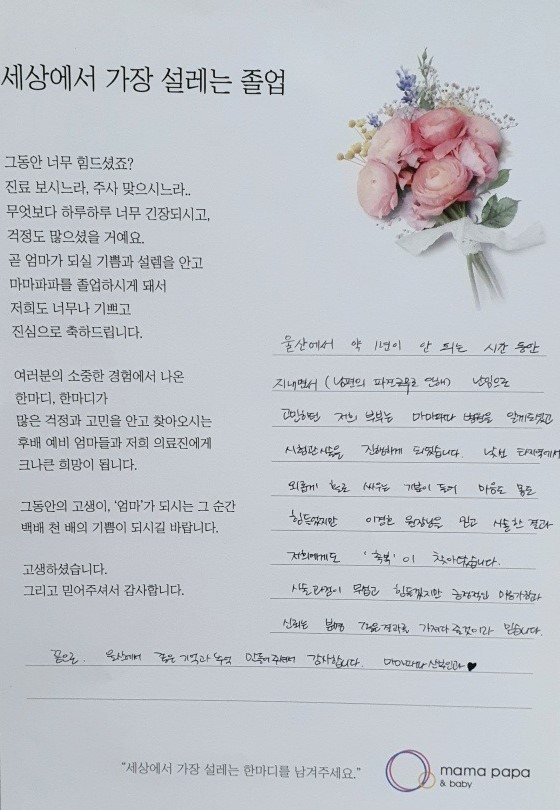 세상에서 가장 설레는 졸업
그동안 너무 힘드셨죠?
진료 보시느라, 주사 맞으시느라..
무엇보다 하루하루 너무 긴장되시고,
걱정도 많으셨을 거예요.
곧 엄마가 되실 기쁨과 설렘을 안고
마마파파를 졸업하시게 돼서
저희도 너무나 기쁘고
진심으로 축하드립니다.
여러분의 소중한 경험에서 나온
한마디, 한마디가
많은 걱정과 고민을 안고 찾아오시는
후배 예비 엄마들과 저희 의료진에게
크나큰 희망이 됩니다.
그동안의 고생이, ‘엄마’가 되시는 그 순간
백배 천 배의 기쁨이 되시길 바랍니다.
고생하셨습니다.
그리고 믿어주셔서 감사합니다.
울산에서 약 1년이 안 되는 시간 동안
지내면서 (남편의 파견근무로 인해) 난임으로
고민하던 저희 부부는 마마파파 병원을 알게되었고
시험관시술을 진행하게 되었습니다. 낯선 타지역에서
외롭게 홀로 싸우는 기분이 들어 마음도 몸도
힘들었지만 이경훈 원장님을 믿고 시술한 결과
저희에게도 '축복'이 찾아왔습니다.
시술과정이 무섭고 힘들겠지만 긍정적인 마음가짐과
신뢰는 분명 좋은결과를 가져다 줄것이라 믿습니다.
끝으로, 울산에서 좋은 기억과 추억 만들어주셔서 감사합니다. 마마파파산부인과 ♥
“세상에서 가장 설레는 한마디를 남겨주세요.”
mama papa
& baby